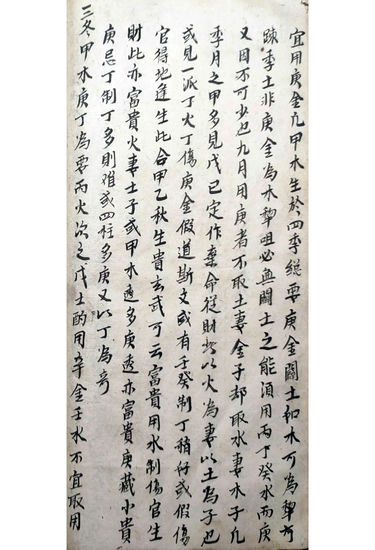 宜用庚金凡甲木生於四季総要庚金闢土如木可為犁所
疎季土非庚金為木犁咀必無闢土之能須用丙丁癸水而庚
又因不可少也九月用庚者不取土妻金子却取水妻木子凡
季月之甲多見戊己定作棄命從財以火為妻以土為子也
或見一派丁火丁傷庚金假道斯文或有壬癸制丁稍好或假傷
官得地逢生此合甲乙秋生貴玄武可云富貴用水制傷官生
財此亦富貴火妻土子或甲木透多庚透亦富貴庚藏小貴
庚忌丁制丁多則難或四柱多庚又以丁為奇
三冬甲木庚丁為要丙火次之戊土酌用辛金壬水不宜取用